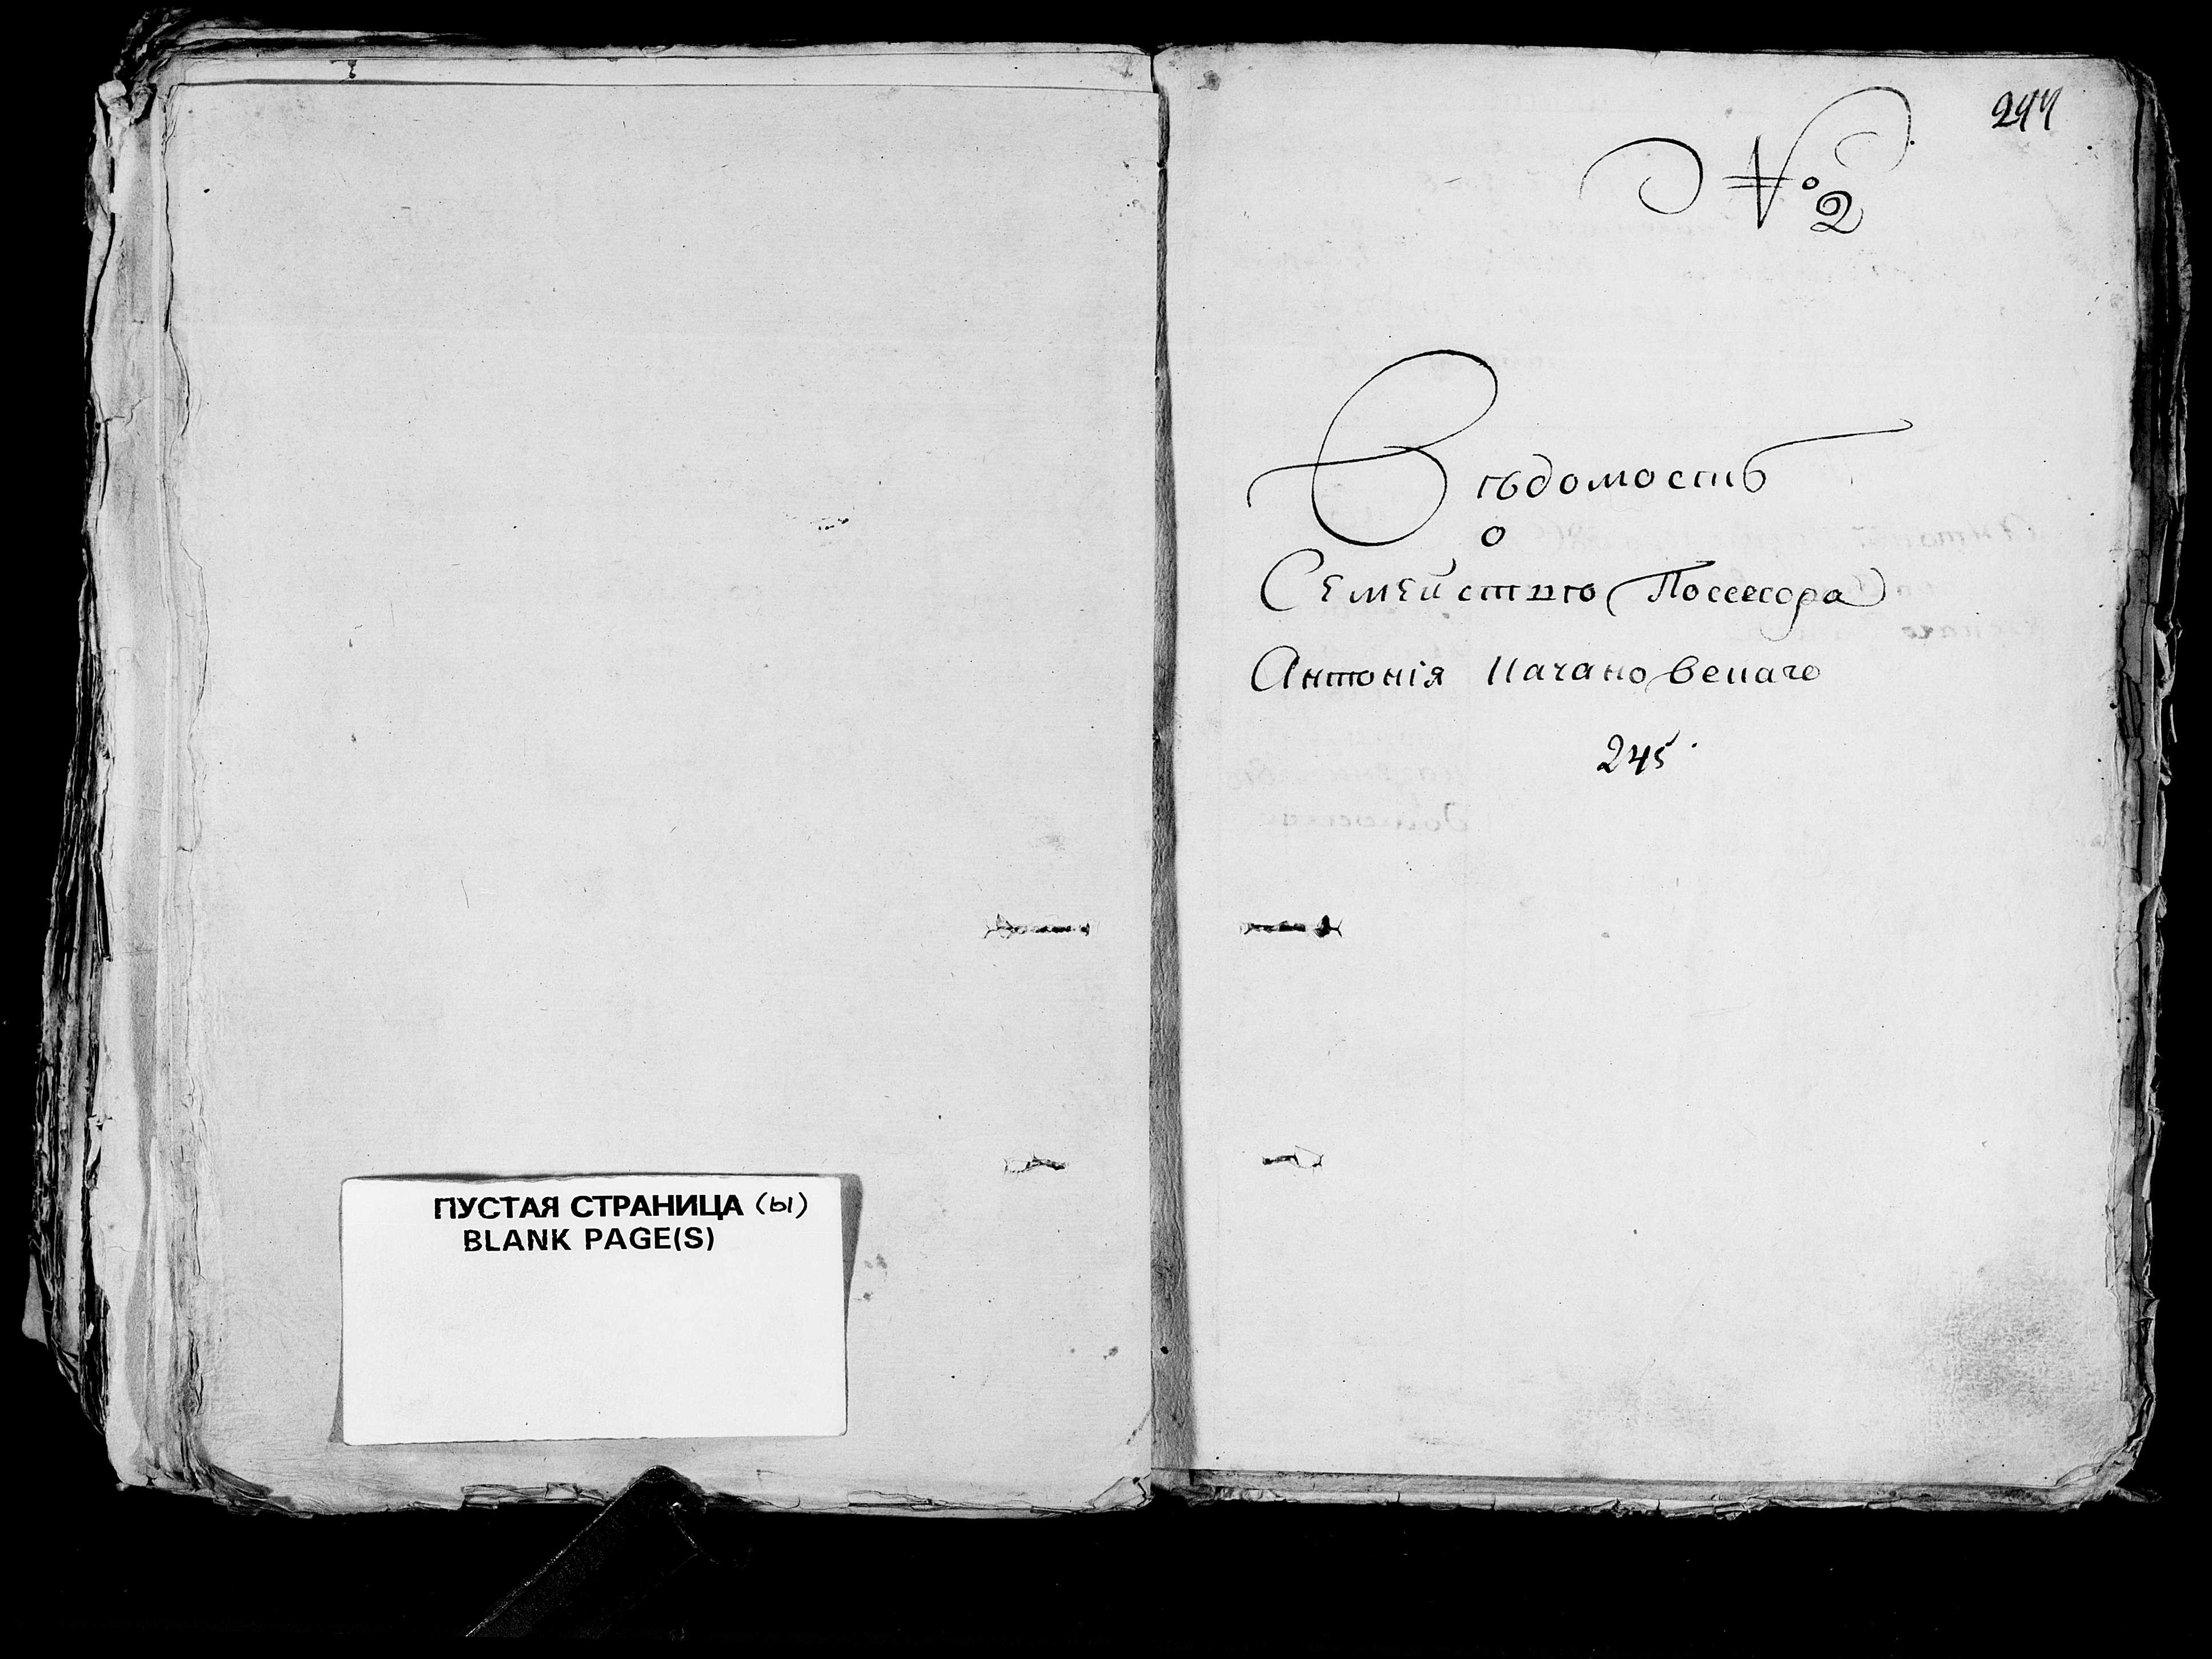 ПУСТАЯ СТРАНИЦА (ы)
BLANK PAGE(S)
244
№ 2
Вѣдомость
о
Семействѣ Поссесора
Антонія Качановскаго
245